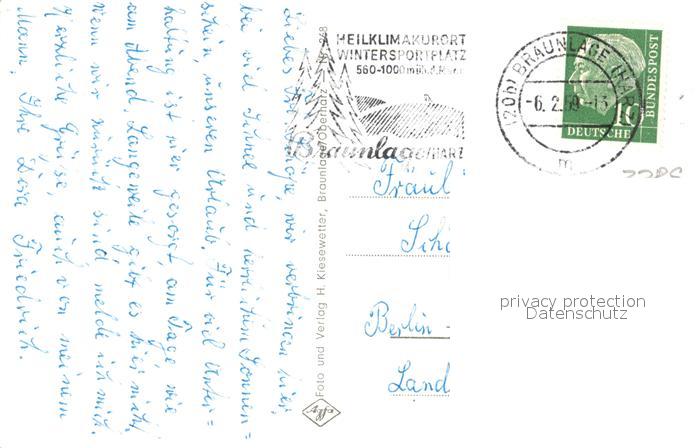 HEILKLIMAKURORT
WINTERSPORTPLATZ
560-1000m üb.d.Meer
Braunlage/HARZ
(20b) BRAUNLAGE (HARZ)
-6. 2. 60.-13
m
10
DEUTSCHE
BUNDESPOST
Liebes wir verbringen hier
bei viel Schnee und herrlichem Sonnen=
schein unseren Urlaub. Für viel Unter=
haltung ist hier gesorgt, am Tage wie
am Abend. Langeweile gibt es hier nicht.
Wenn wir zurück sind melde ich mich.
Herzliche Grüße, auch von meinem
Mann, Ihre Dora Friedrich.
Foto und Verlag H. Kiesewetter, Braunlage/Oberharz
Agfa
Fräul
Sch
Berlin -
Land
privacy protection
Datenschutz